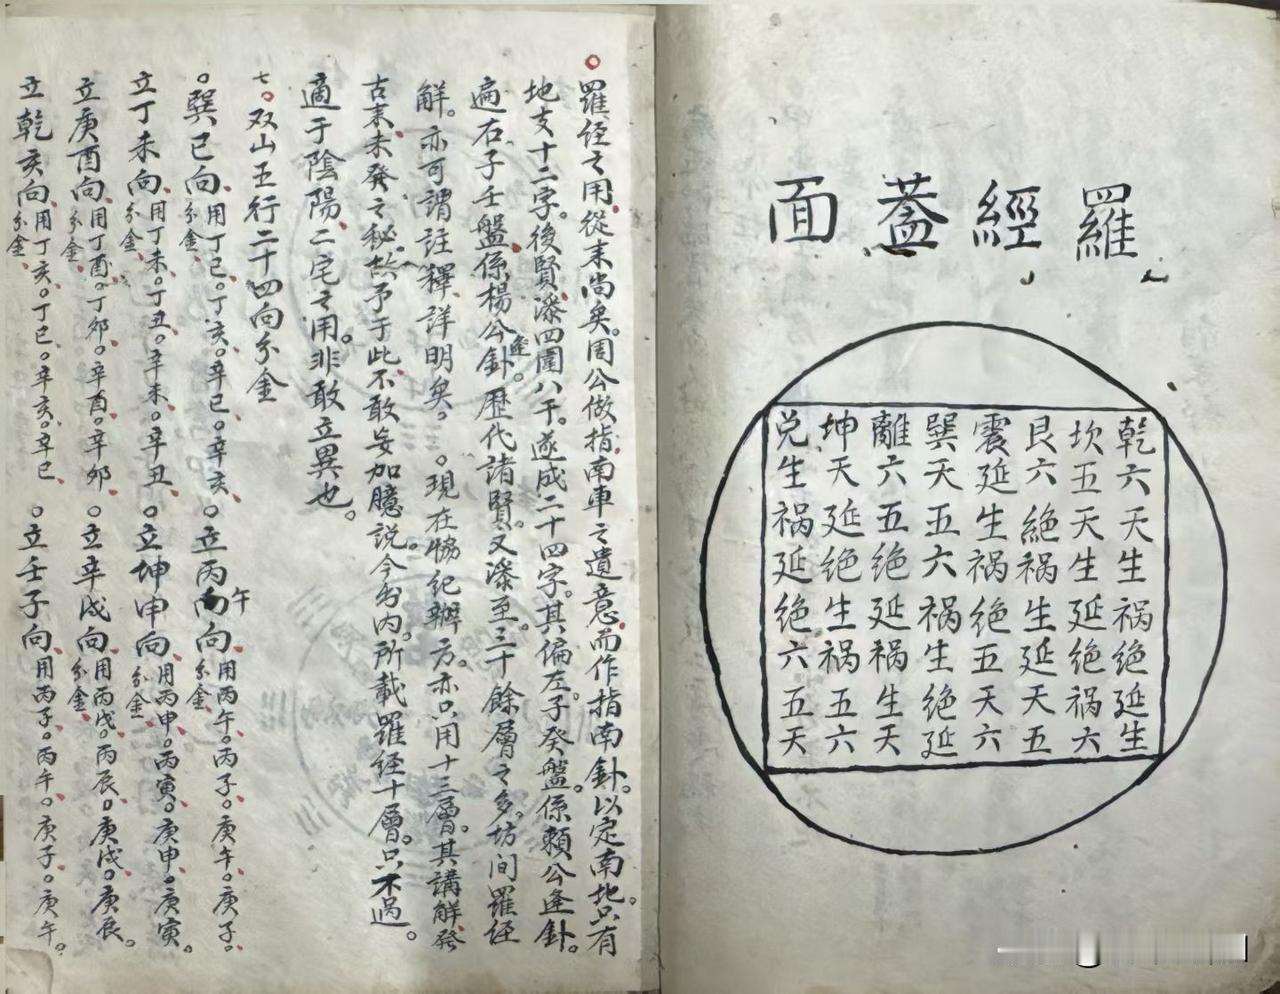 羅經蓋面
乾六天生祸绝延生
坎五天生延绝祸六
艮六絶祸生延天五
震延生祸绝五天六
巽天五六祸生绝延
離六五绝延祸生天
坤天延绝生祸五六
兑生祸延绝六五天
羅经之用。從来尚矣。周公做指南車之遺意而作指南針。以定南北。只有
地支十二字。後賢添四圍八干。遂成二十四字。其偏左子癸盤。係賴公逢針。
遍右子壬盤係楊公逢針。歴代諸賢又添至三十餘層之多。坊间羅经
解。亦可謂註釋详明矣。。現在協纪辨方。亦只用十三層。其講解發
古来未發之秘。故予于此不敢妄加臆説。今書内所载羅经十層。只不過。
適于陰陽二宅之用。非敢立異也。
七。双山五行二十四向分金
。巽巳向分金用丁巳。丁亥。辛巳。辛亥。立丙午向分金用丙午。丙子。庚午。庚子。
立丁未向分金用丁未。丁丑。辛未。辛丑。立坤申向分金用丙申。丙寅。庚申。庚寅。
立庚酉向分金用丁酉。丁卯。辛酉。辛卯。立辛戌向分金用丙戌。丙辰。庚戌。庚辰。
立乾亥向分金用丁亥。丁巳。辛亥。辛巳。立壬子向用丙子。丙午。庚子。庚午。